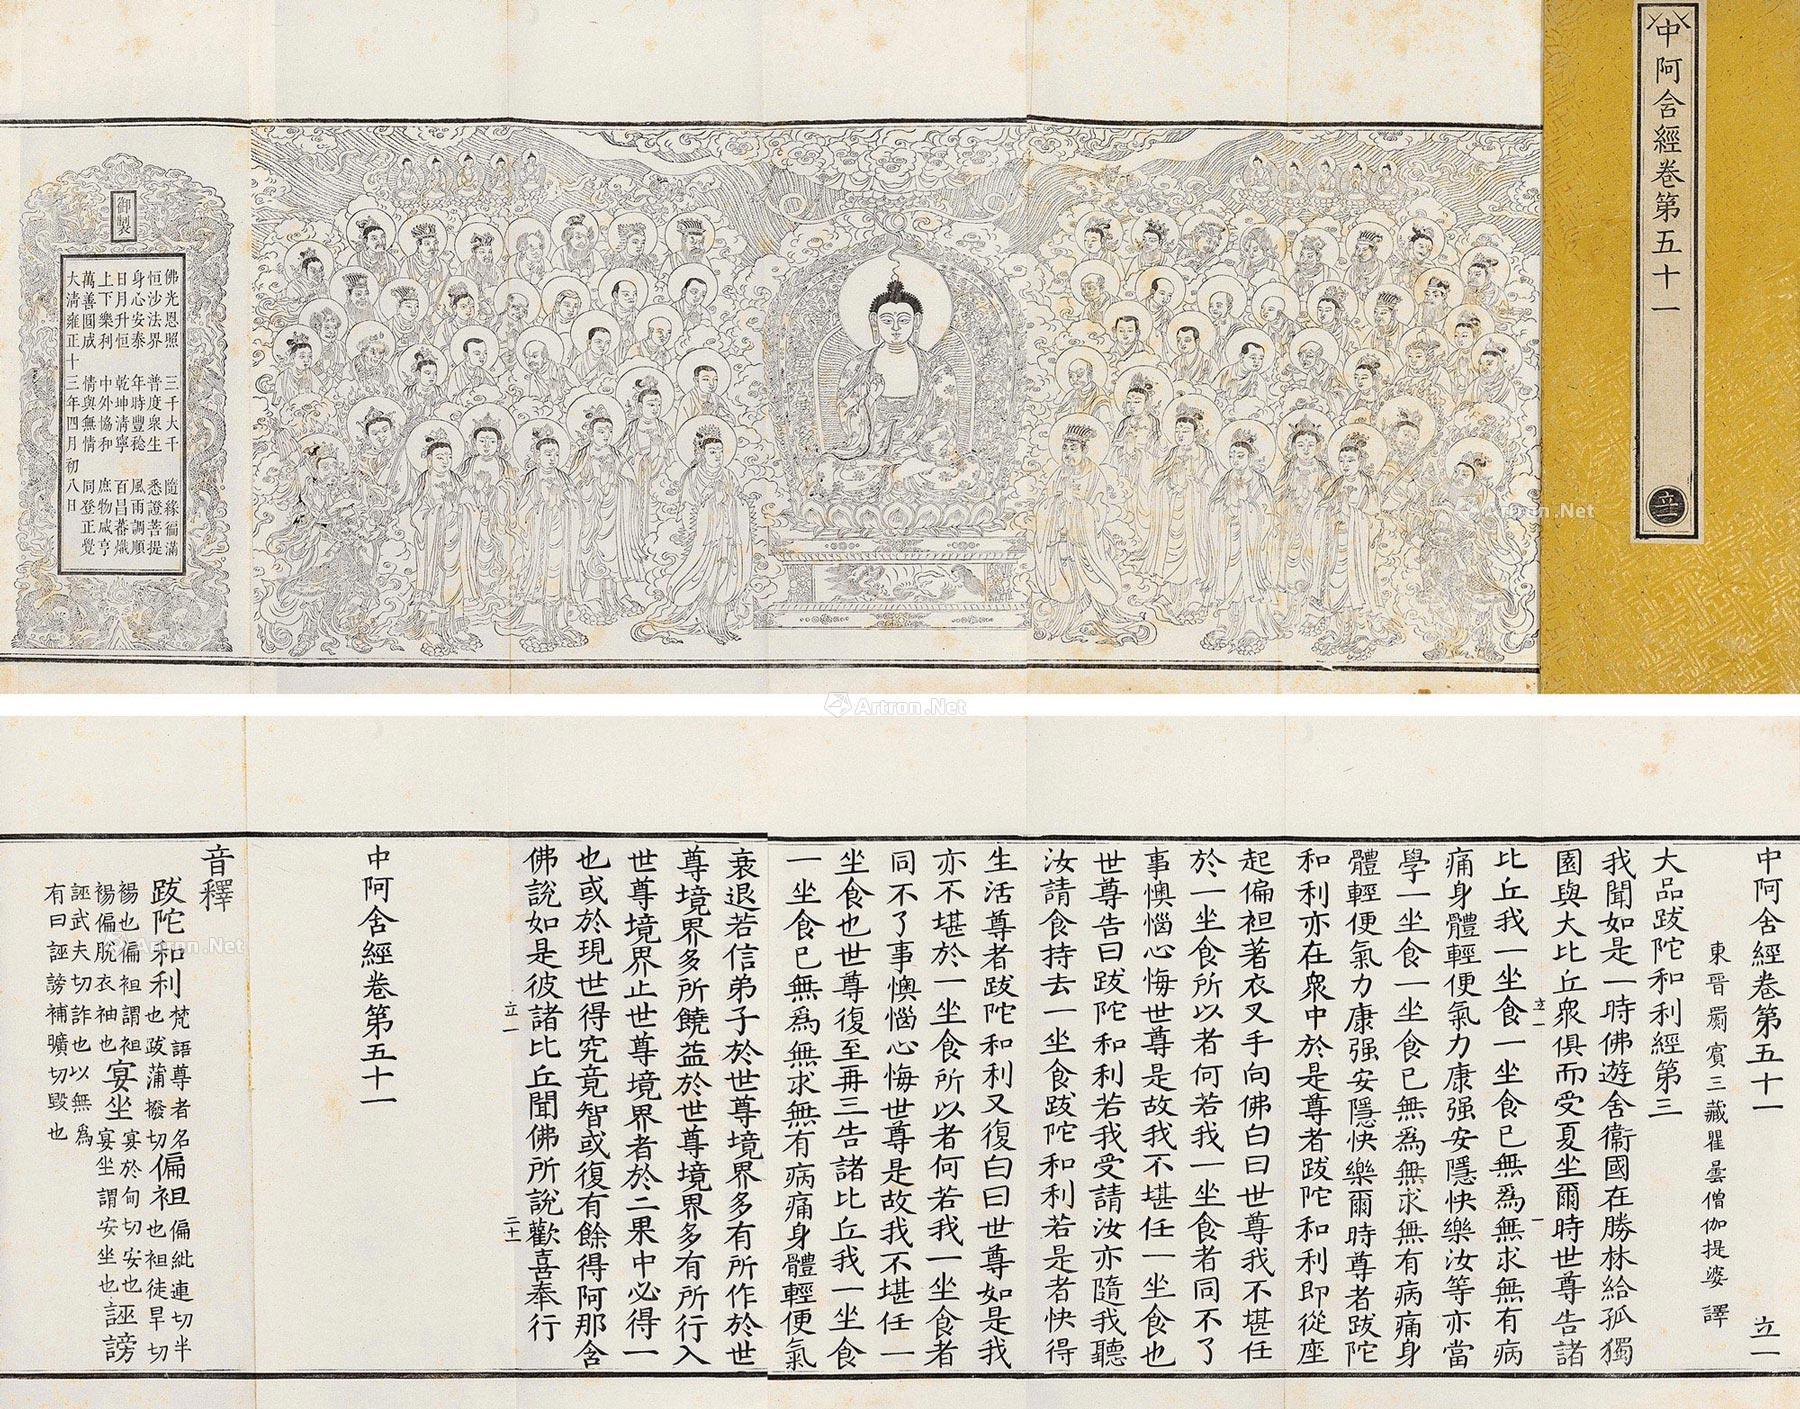 中阿含經卷第五十一
立一
御製
佛光恩照 三千大千 隨緣徧滿
恒沙法界 普度衆生 悉證菩提
身心安泰 年時豐稔 風雨調順
日月升恒 乾坤清寧 百昌蕃熾
上下樂利 中外協和 庶物咸亨
萬善圓成 情與無情 同登正覺
大清雍正十三年四月初八日
Artron.Net
Artron.Net
中阿含經卷第五十一 立一
東晉罽賓三藏瞿曇僧伽提婆 譯
大品跋陀和利經第三
我聞如是一時佛遊舍衞國在勝林給孤獨
園與大比丘衆俱而受夏坐爾時世尊告諸
立一 一
比丘我一坐食一坐食已無爲無求無有病
痛身體輕便氣力康强安隱快樂汝等亦當
學一坐食一坐食已無爲無求無有病痛身
體輕便氣力康强安隱快樂爾時尊者跋陀
和利亦在衆中於是尊者跋陀和利即從座
起偏袒著衣叉手向佛白曰世尊我不堪任
於一坐食所以者何若我一坐食者同不了
事懊惱心悔世尊是故我不堪任一坐食也
世尊告曰跋陀和利若我受請汝亦隨我聽
汝請食持去一坐食跋陀和利若是者快得
生活尊者跋陀和利又復白曰世尊如是我
亦不堪於一坐食所以者何若我一坐食者
同不了事懊惱心悔世尊是故我不堪任一
坐食也世尊復至再三告諸比丘我一坐食
一坐食已無爲無求無有病痛身體輕便氣
衰退若信弟子於世尊境界多有所作於世
尊境界多所饒益於世尊境界多有所行入
世尊境界止世尊境界者於二果中必得一
也或於現世得究竟智或復有餘得阿那含
佛說如是彼諸比丘聞佛所說歡喜奉行
立一 二十一
中阿含經卷第五十一
音釋
跋陀和利梵語尊者名也跋蒲撥切偏袒偏紕連切半也袒徒旱切
裼也偏袒謂袒裼偏脫衣袖也宴坐宴於甸切安也宴坐謂安坐也誣謗
誣武夫切詐也以無爲有曰誣謗補曠切毀也
Artron.Net